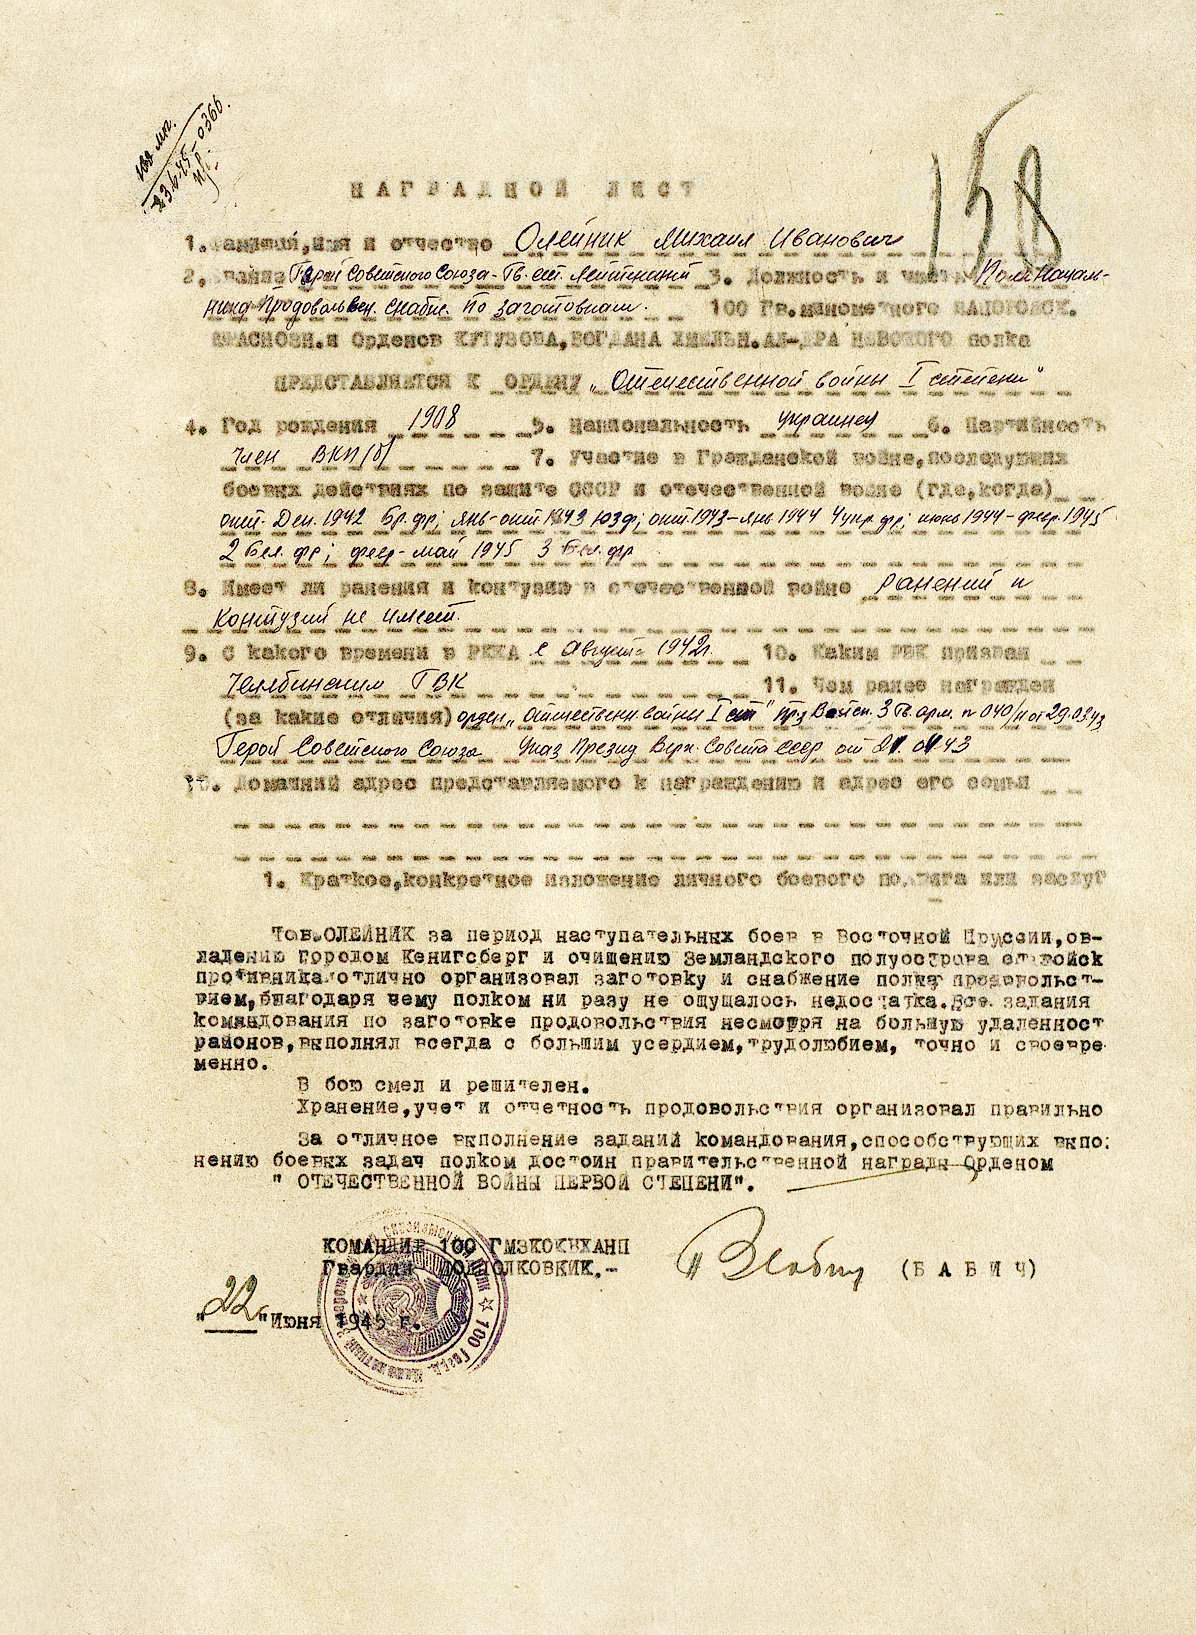 23.6.45 - 0366.
158
НАГРАДНОЙ ЛИСТ
1. Фамилия, имя и отчество Олейник Михаил Иванович
2. Звание Герой Советского Союза - Гв. ст. лейтенант 3. Должность и часть Пом. Началь-
ника Продовольствен. снабж. по заготовкам. 100 Гв. минометного ЗАПОРОЖСК.
КРАСНОЗН. и Орденов КУТУЗОВА, БОГДАНА ХМЕЛЬН. АЛ-ДРА НЕВСКОГО полка
ПРЕДСТАВЛЯЕТСЯ К ОРДЕНУ „Отечественной войны I степени"
4. Год рождения 1908 5. Национальность украинец 6. Партийность
член ВКП/б/ 7. Участие в Гражданской войне, последующих
боевых действиях по защите СССР и отечественной войне (где, когда)
окт. Дек. 1942 Бр. фр; янв-окт 1943 ЮЗф; окт. 1943-янв 1944 4 укр. фр; июнь 1944-февр. 1945
2 Бел. фр; февр-май 1945 3 Бел. фр
8. Имеет ли ранения и контузию в отечественной войне Ранений и
контузий не имеет.
9. С какого времени в РККА с Августа 1942г. 10. Каким РВК призван
Челябинским ГВК 11. Чем ранее награжден
(за какие отличия) орден „Отечествен. войны I ст" прз Войск. 3 Гв. арм. n 040/н от 29.03.43
Герой Советского Союза Указ Презид Верх. Совета ссср от 21.04.43
Домашний адрес представляемого к награждению и адрес его семьи
1. Краткое, конкретное изложение личного боевого подвига или заслуг
Тов. ОЛЕЙНИК за период наступательных боев в Восточной Пруссии, ов-
ладению городом Кенигсберг и очищению Земландского полуострова от войск
противника отлично организовал заготовку и снабжение полка продовольст-
вием, благодаря чему полком ни разу не ощущалось недостатка. Все задания
командования по заготовке продовольствия несмотря на большую удаленност
районов, выполнял всегда с большим усердием, трудолюбием, точно и своевре-
менно.
В бою смел и решителен.
Хранение, учет и отчетность продовольствия организовал правильно
За отличное выполнение заданий командования, способствующих выпол
нению боевых задач полком достоин правительственной награды Орденом
" ОТЕЧЕСТВЕННОЙ ВОЙНЫ ПЕРВОЙ СТЕПЕНИ".
КОМАНДИР 100 ГМЗКОКБХАНП
Гвардии ПОДПОЛКОВНИК.- (Б А Б И Ч)
"22" Июня 1945 г.